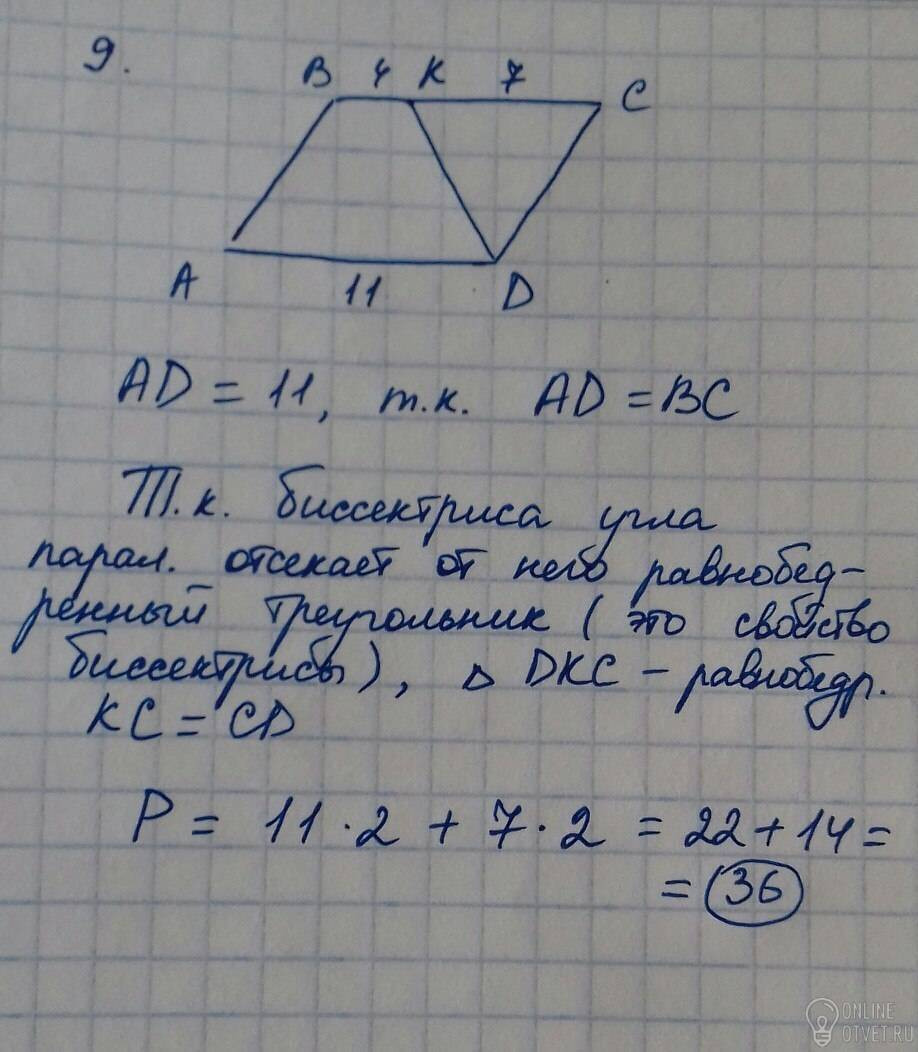 9.
B 4 K 7 C
A 11 D
AD = 11, т.к. AD = BC
Т.к. биссектриса угла
парал. отсекает от него равнобед-
ренный треугольник (это свойство
биссектрисы), △ DKC - равнобедр.
KC = CD
P = 11 · 2 + 7 · 2 = 22 + 14 =
= 36
ONLINE
OTVET.RU